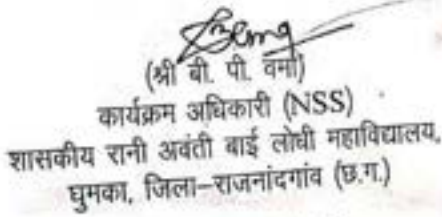 (श्री बी. पी. वर्मा)
कार्यक्रम अधिकारी (NSS)
शासकीय रानी अवंती बाई लोधी महाविद्यालय,
घुमका, जिला-राजनांदगांव (छ.ग.)